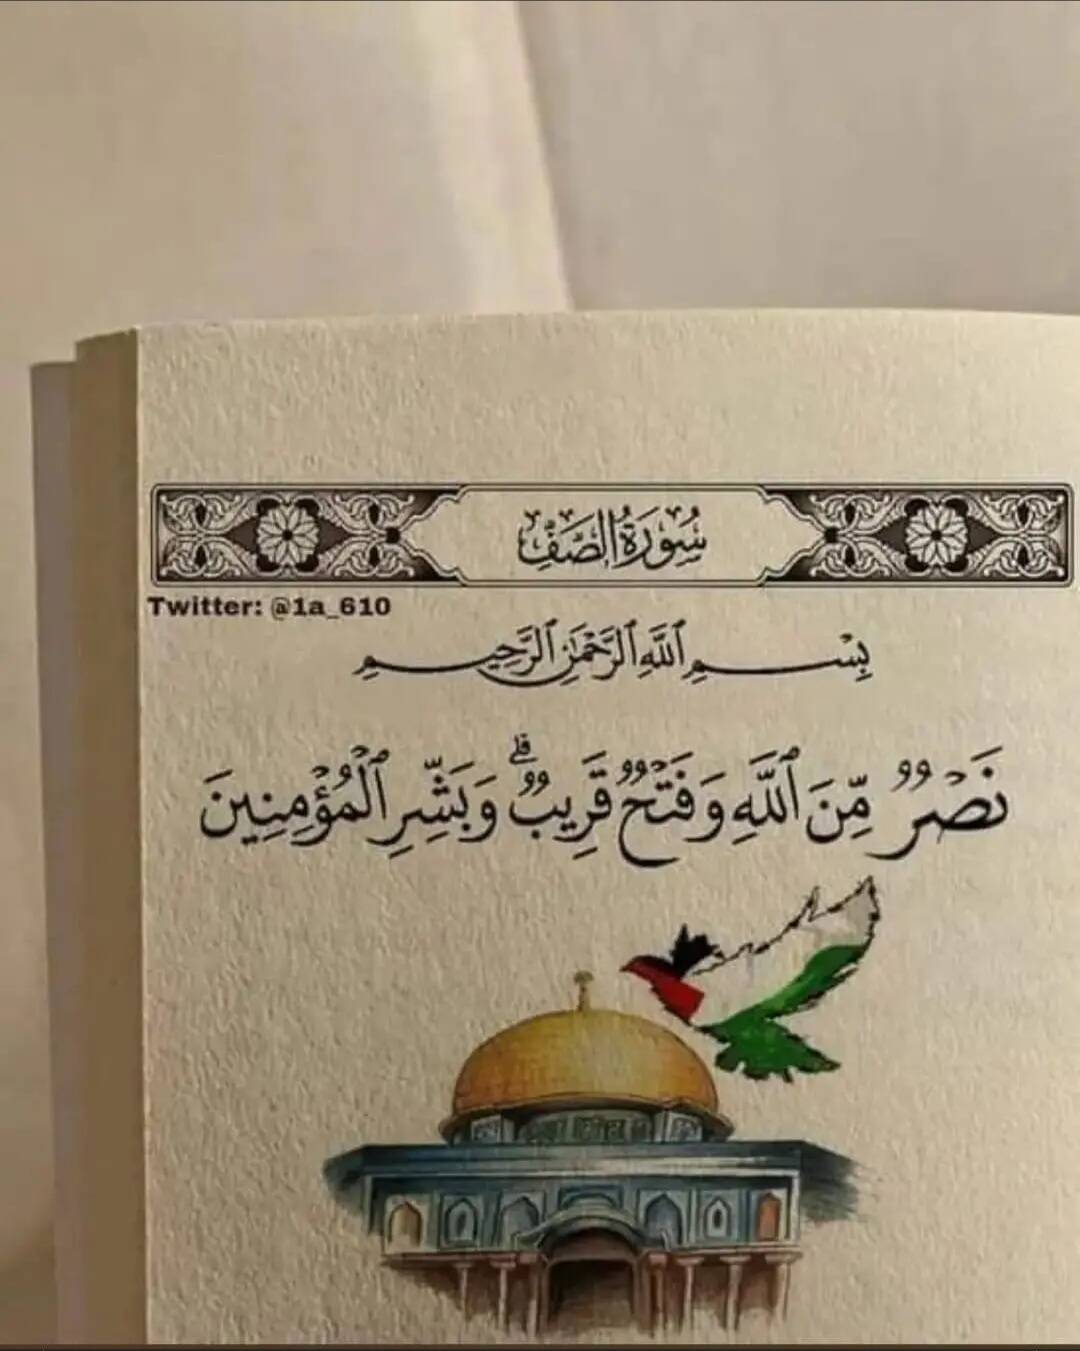 سُورَةُ الصَّفِّ
Twitter: @1a_610
بِسْمِ ٱللَّهِ ٱلرَّحْمَٰنِ ٱلرَّحِيمِ
نَصْرٌ مِّنَ ٱللَّهِ وَفَتْحٌ قَرِيبٌ ۗ وَبَشِّرِ ٱلْمُؤْمِنِينَ